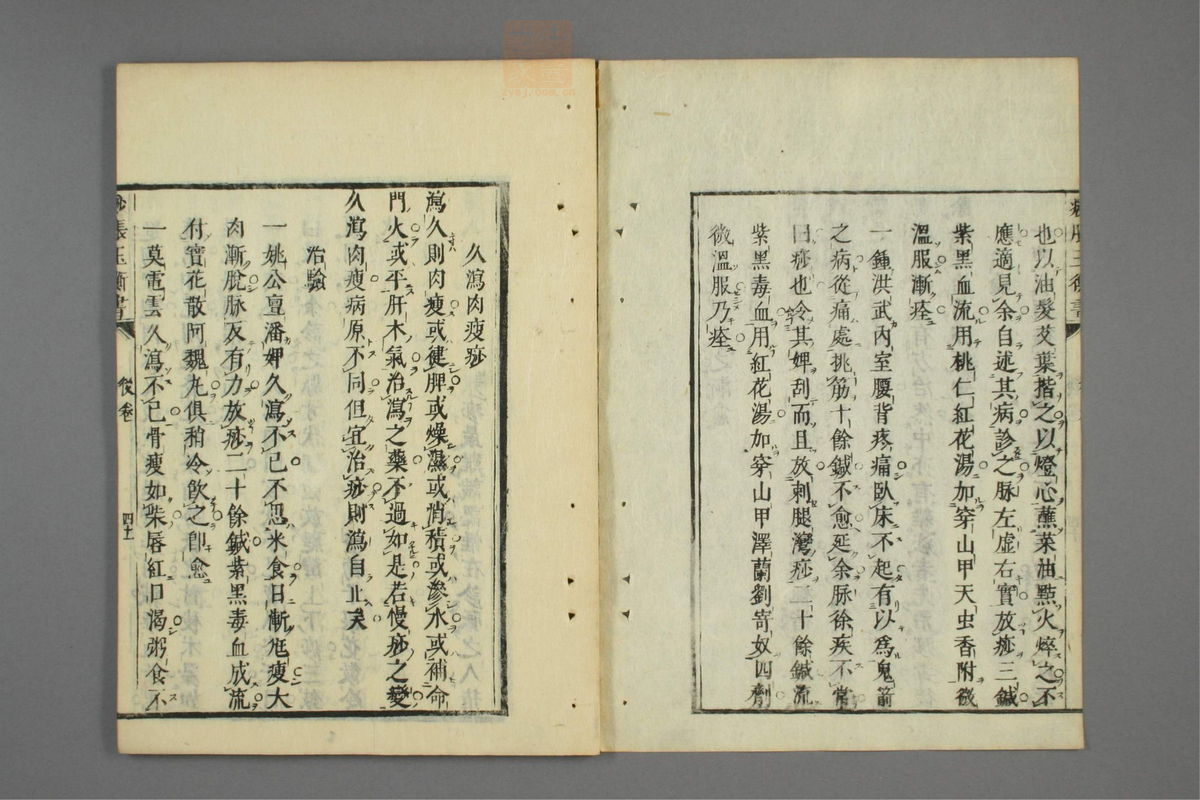 也以油髮芟葉揩之以燈心蘸菜油點火焠之不
應適見余自述其病診之脉左虛右實放痧三鍼
紫黑血流用桃仁紅花湯加穿山甲天虫香附微
溫服漸痊
一鍾洪武內室腰背疼痛臥床不起有以爲鬼箭
之病從痛處挑筋十餘鍼不愈延余脉徐疾不常
曰痧也令其婢刮而且放刺腿灣痧二十餘鍼流
紫黑毒血用紅花湯加穿山甲澤蘭劉寄奴四劑
微溫服乃痊
久瀉肉瘦痧
瀉久則肉瘦或健脾或燥濕或消積或滲水或補命
門火或平肝木氣治瀉之藥不過如是若慢痧之變
久瀉肉瘦病原不同但宜治痧則瀉自止矣
治驗
一姚公亶潘婢久瀉不已不思米食日漸尫瘦大
肉漸脫脉反有力放痧二十餘鍼紫黑毒血成流
付寶花散阿魏丸俱稍冷飲之卽愈
一莫電雲久瀉不已骨瘦如柴唇紅口渴粥食不
痧脹玉衡書 後卷 四十一